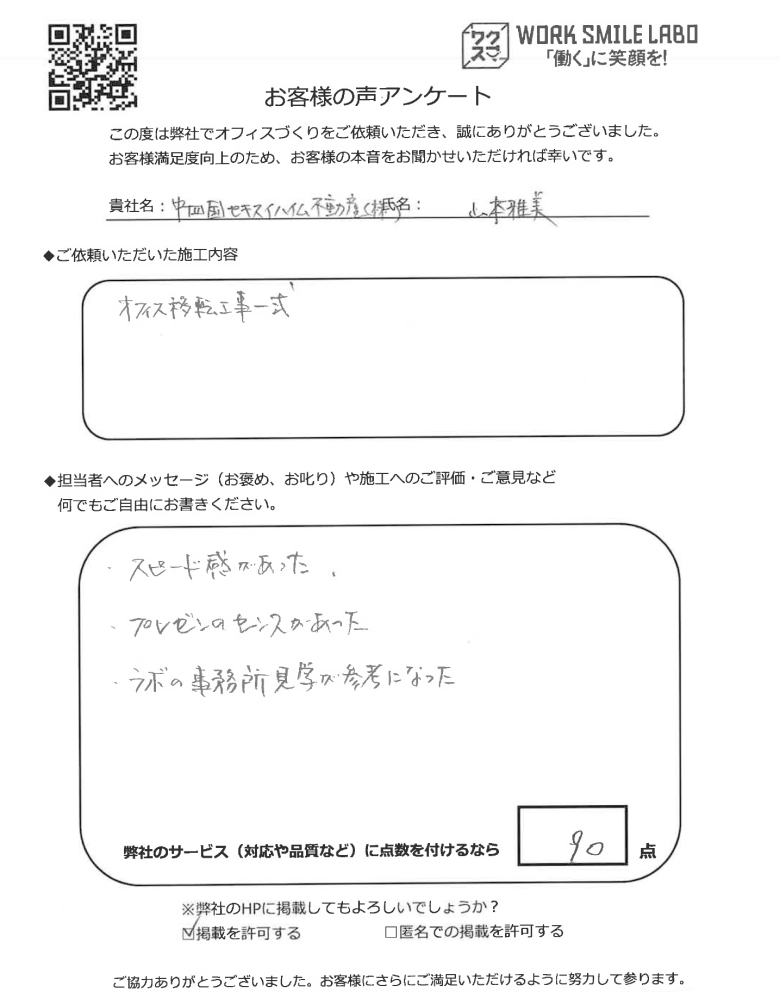 ワク
スマ
WORK SMILE LABO
「働く」に笑顔を!
お客様の声アンケート
この度は弊社でオフィスづくりをご依頼いただき、誠にありがとうございました。
お客様満足度向上のため、お客様の本音をお聞かせいただければ幸いです。
貴社名:中四国セキスイハイム不動産(株)氏名: 山本雅美
◆ご依頼いただいた施工内容
オフィス移転工事一式
◆担当者へのメッセージ(お褒め、お叱り)や施工へのご評価・ご意見など
何でもご自由にお書きください。
・スピード感があった.
・プレゼンのセンスがあった
・ラボの事務所見学が参考になった
弊社のサービス(対応や品質など)に点数を付けるなら 90 点
※弊社のHPに掲載してもよろしいでしょうか?
☑掲載を許可する □匿名での掲載を許可する
ご協力ありがとうございました。お客様にさらにご満足いただけるように努力して参ります。